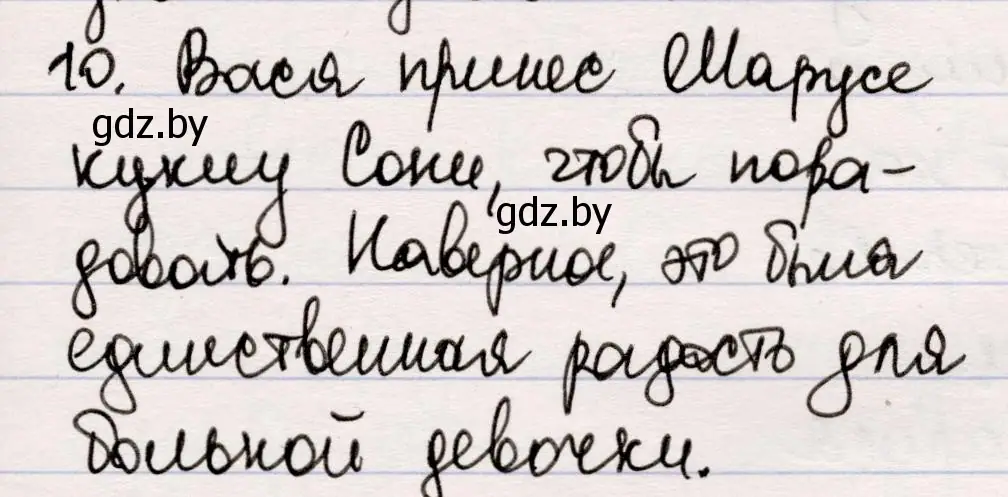 10. Вася принес Марусе
gdz.by
куклу Сони, чтобы пора-
gdz.by
довать. Наверное, это была
единственная радость для
больной девочки.